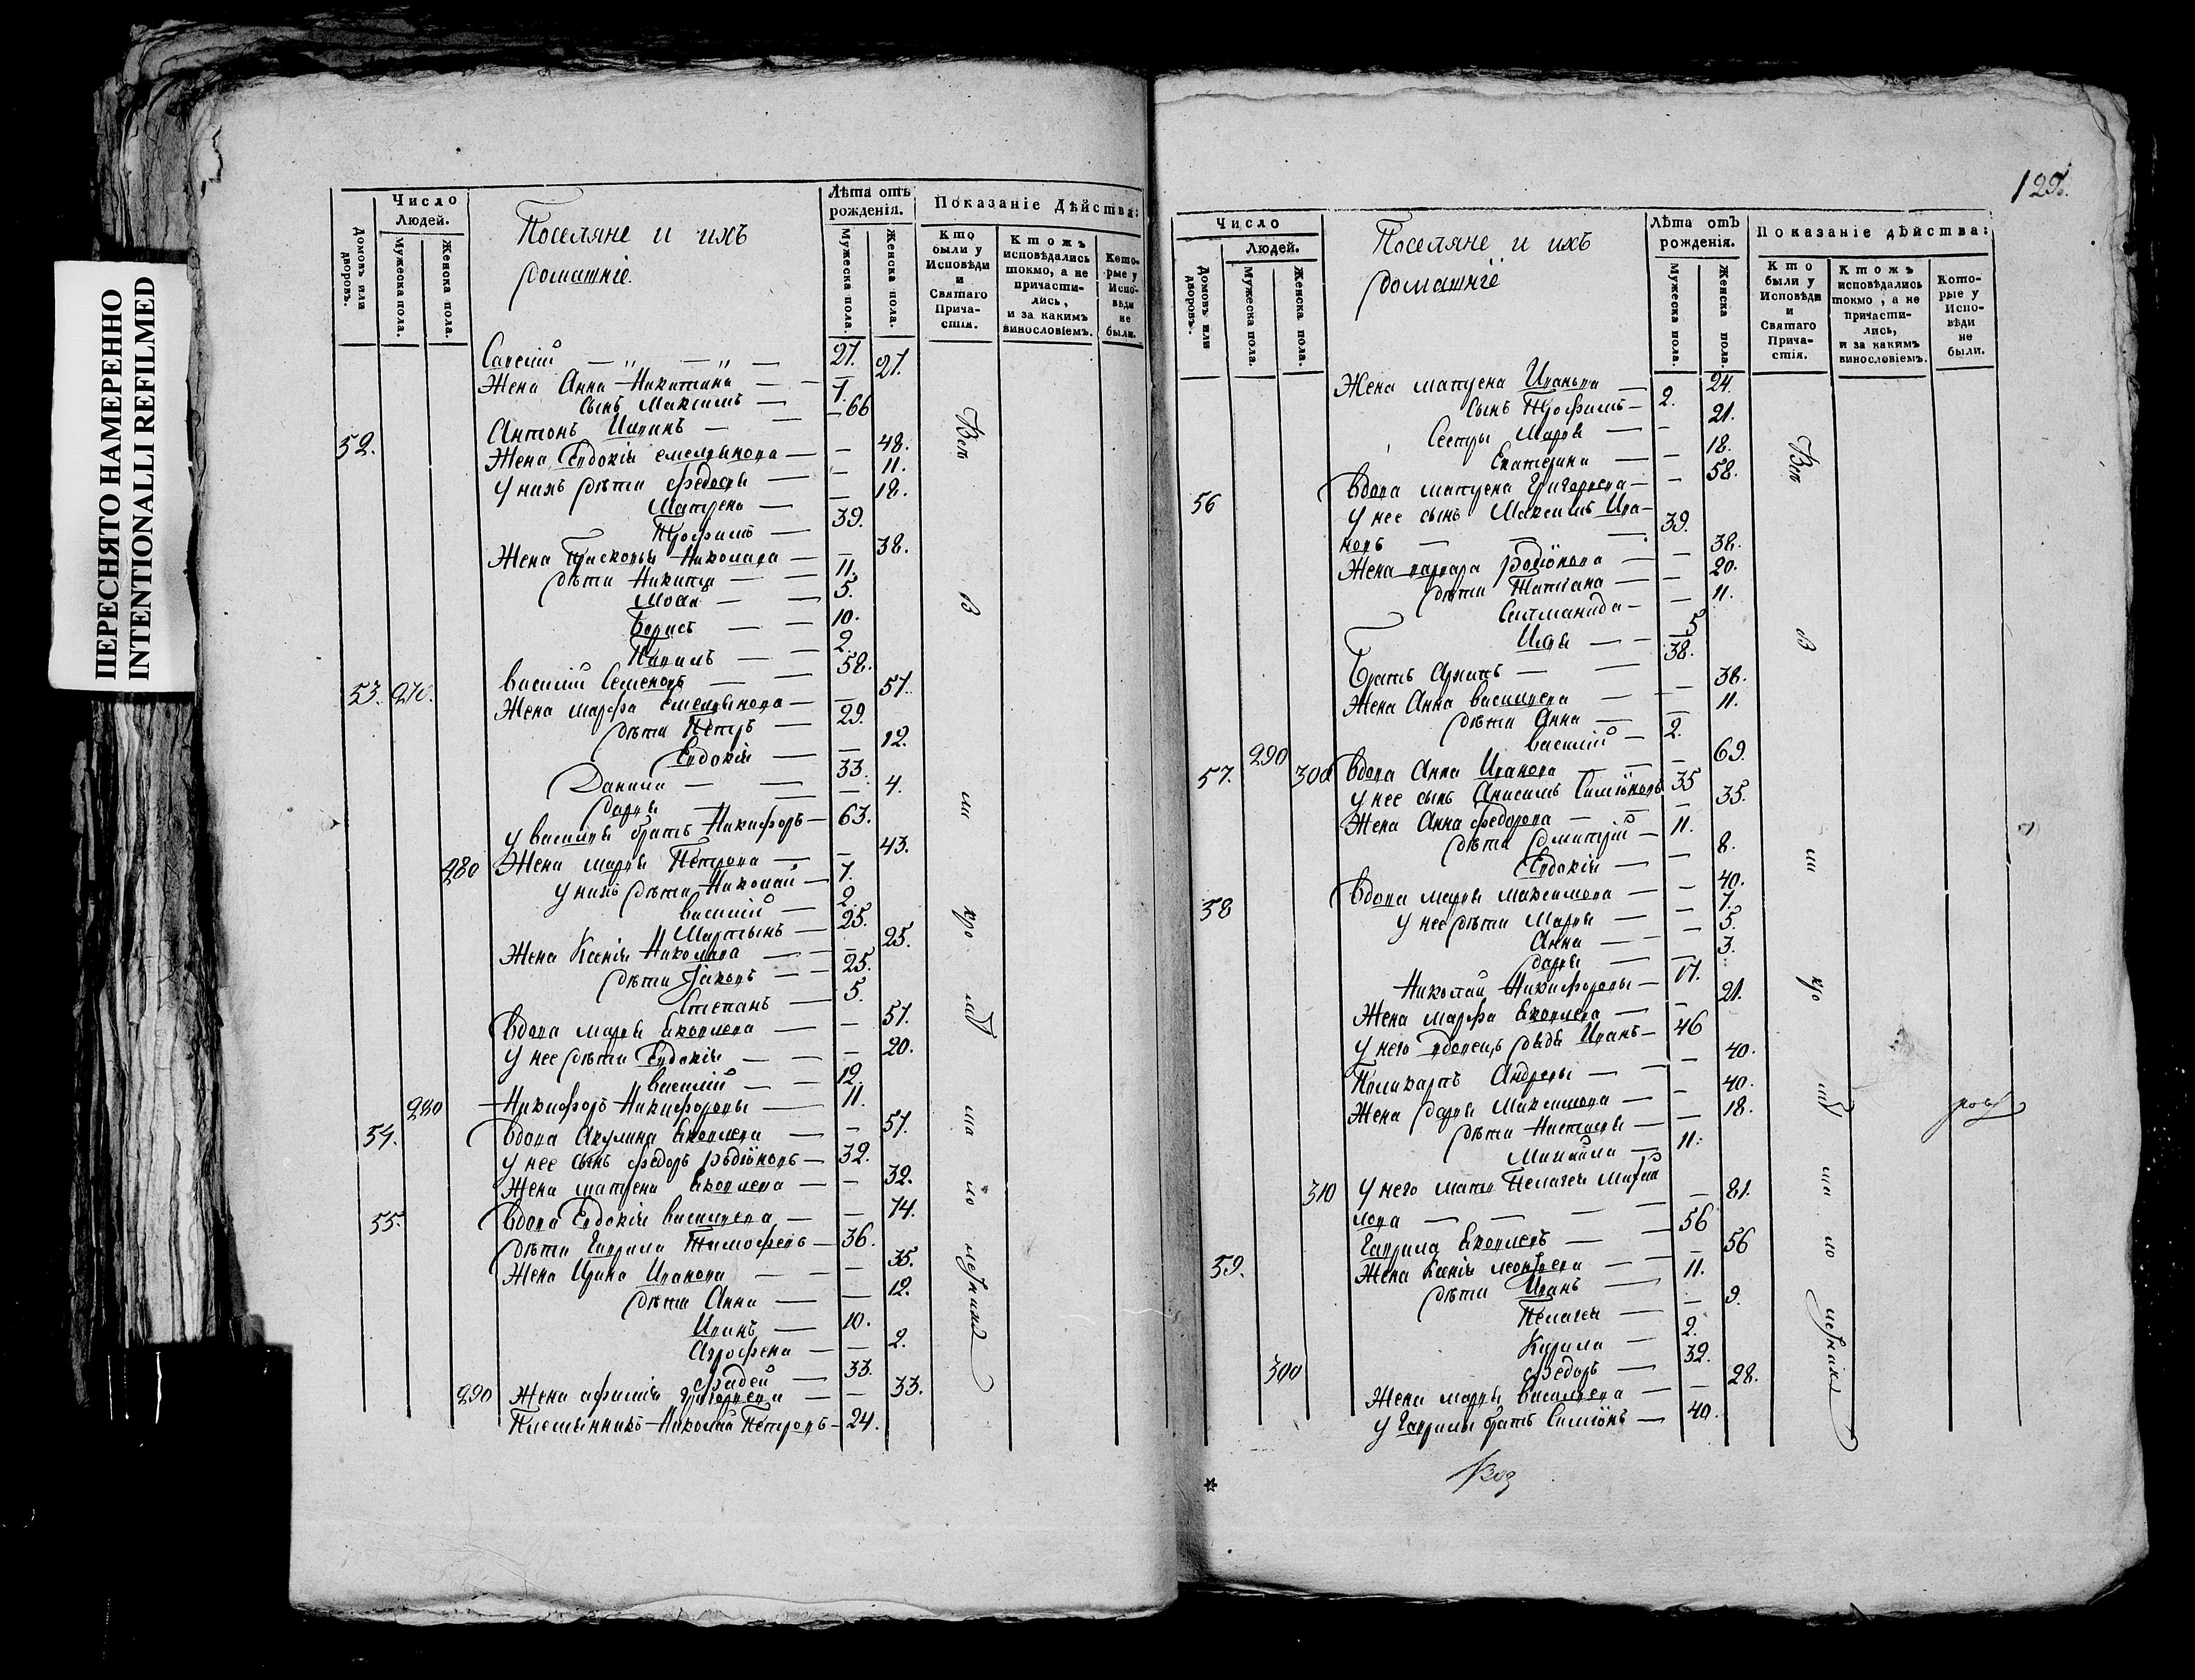 ПЕРЕСНЯТО НАМЕРЕННО
INTENTIONALLI REFILMED
Число
Людей.
Домовъ или дворовъ.
Мужеска пола.
Женска пола.
Поселяне и ихъ
домашніе.
Лѣта отъ
рожденія.
Мужеска пола.
Женска пола.
Показаніе Дѣйства:
Кто
были у
Исповѣди
и
Святаго
Прича-
стія.
Ктожъ
исповѣдались
токмо, а не
причасти-
лись,
и за какимъ
винословіемъ.
Кото-
рые у
Испо-
вѣди
не
были.
27.
Жена Анна Никитина — 27.
сынъ Максимъ — 7.
52. Антонъ Ивановъ — 66
Жена Евдокія Емельянова — 48.
у нихъ дѣти Федосья — 11.
Матрена — 18.
Трофимъ — 39.
Жена Прасковья Николаева — 38.
дѣти Никита — 11.
5.
Борисъ — 10.
2.
53. 270. Василій Семеновъ — 58.
Жена Марфа Емельянова — 57.
дѣти Петръ — 29.
Евдокія — 12.
Данила — 33.
Дарья — 4.
у Василья братъ Никифоръ — 63.
280 Жена Марья Петрова — 43.
у нихъ дѣти Николай — 7.
Василій — 2.
Мартынъ — 25.
Жена Ксенія Николаева — 25.
дѣти Яковъ — 25.
Степанъ — 5.
Вдова Марья Яковлева — 57.
у нее дѣти Евдокія — 20.
Василій — 12.
280 Никифоръ Никифоровъ — 11.
54. Вдова Акулина Яковлева — 57.
у нее сынъ Федоръ Родіоновъ — 32.
Жена Матрена Яковлева — 32.
55. Вдова Евдокія Васильева — 74.
дѣти Гаврила Тимофеевъ — 36.
Жена Ирина Иванова — 35.
дѣти Анна — 12.
Иванъ — 10.
Аграфена — 2.
Фадей — 33.
290 Жена Афимія Григорьева — 33.
Племянникъ Николай Петровъ — 24.
Число
Людей.
Домовъ или дворовъ.
Мужеска пола.
Женска пола.
Поселяне и ихъ
домашніе
Лѣта отъ
рожденія.
Мужеска пола.
Женска пола.
Показаніе дѣйства:
Кто
были у
Исповѣди
и
Святаго
Прича-
стія.
Ктожъ
исповѣдались
токмо, а не
причасти-
лись,
и за какимъ
винословіемъ.
Кото-
рые у
Испо-
вѣди
не
были.
Жена Матрена Иванова — 24.
сынъ Трофимъ — 2.
Сестры Марья — 21.
Екатерина — 18.
56 Вдова Матрена Григорьева — 58.
у нее сынъ Максимъ Ива-
новъ — 39.
Жена Варвара Родіонова — 38.
дѣти Татіана — 20.
11.
Илья — 5
Братъ — 38.
Жена Анна Васильева — 38.
дѣти Анна — 11.
Василій — 2.
57. 290 300 Вдова Анна Иванова — 69.
у нее сынъ Анисимъ Симіоновъ 35
Жена Анна Федорова — 35.
дѣти Дмитрій — 11.
Евдокія — 8.
58 Вдова Марья Максимова — 40.
у нее дѣти Марья — 7.
Анна — 5.
Дарья — 3.
Николай Никифоровъ — 17.
Жена Марфа Яковлева — 21.
у него дядя Иванъ — 46
Поликарпъ Андреевъ — 40.
Жена Дарья Максимова — 40.
дѣти Настасья — 18.
Михайла — 11.
310 у него мать Пелагея Михай
лова — 81.
59. Гаврила Яковлевъ — 56
Жена Ксенія Леонтьева — 56
дѣти Иванъ — 11.
Пелагея — 9.
Кирила — 2.
300 Федоръ — 32.
Жена Марья Васильева — 28.
у Гаврилы братъ Симіонъ — 40.